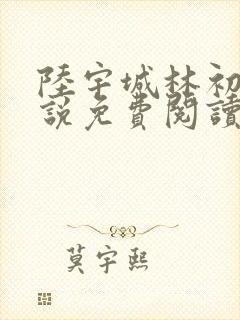 陸宇城林初
說免費閱讀
莫宇熙